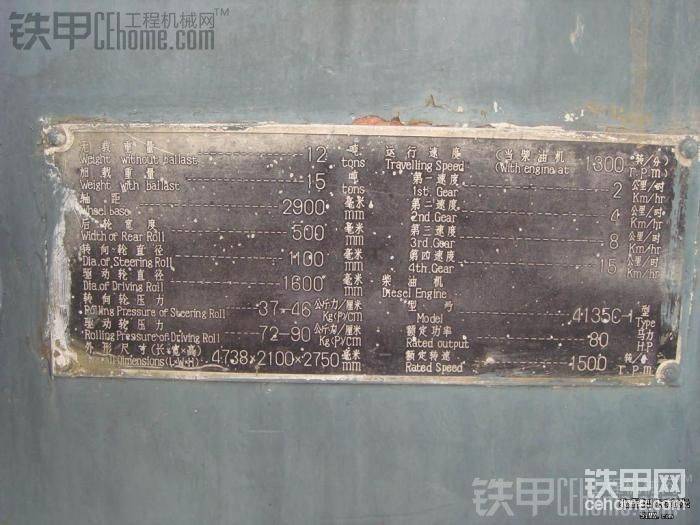 铁甲 工程机械网™
CEhome.com
铁甲 工程机械网™
CEhome.com
无载重量 12 吨
Weight without ballast tons
加载重量 15 吨
Weight with ballast tons
轴距 2900 毫米
Wheel base mm
后轮宽度 500 毫米
Width of Rear Roll mm
转向轮直径 1100 毫米
Dia. of Steering Roll mm
驱动轮直径 1600 毫米
Dia. of Driving Roll mm
转向轮压力 37-46 公斤力/厘米
Rolling Pressure of Steering Roll Kg(P)/cm
驱动轮压力 72-90 公斤力/厘米
Rolling Pressure of Driving Roll Kg(P)/cm
外形尺寸(长×宽×高) 4738×2100×2750 毫米
Dimensions(L·W·H) mm
运行速度 (当柴油机 1300 转/分)
Travelling Speed (With engine at r.p.m)
第一速度 2 公里/时
1st. Gear Km/hr
第二速度 4 公里/时
2nd. Gear Km/hr
第三速度 8 公里/时
3rd. Gear Km/hr
第四速度 15 公里/时
4th. Gear Km/hr
柴油机
Diesel Engine
型号 4135C-1 型
Model Type
额定功率 80 马力
Rated output HP
额定转速 1500 转/分
Rated Speed r.p.m
铁甲
CEhome.com
铁甲网
cehome.com